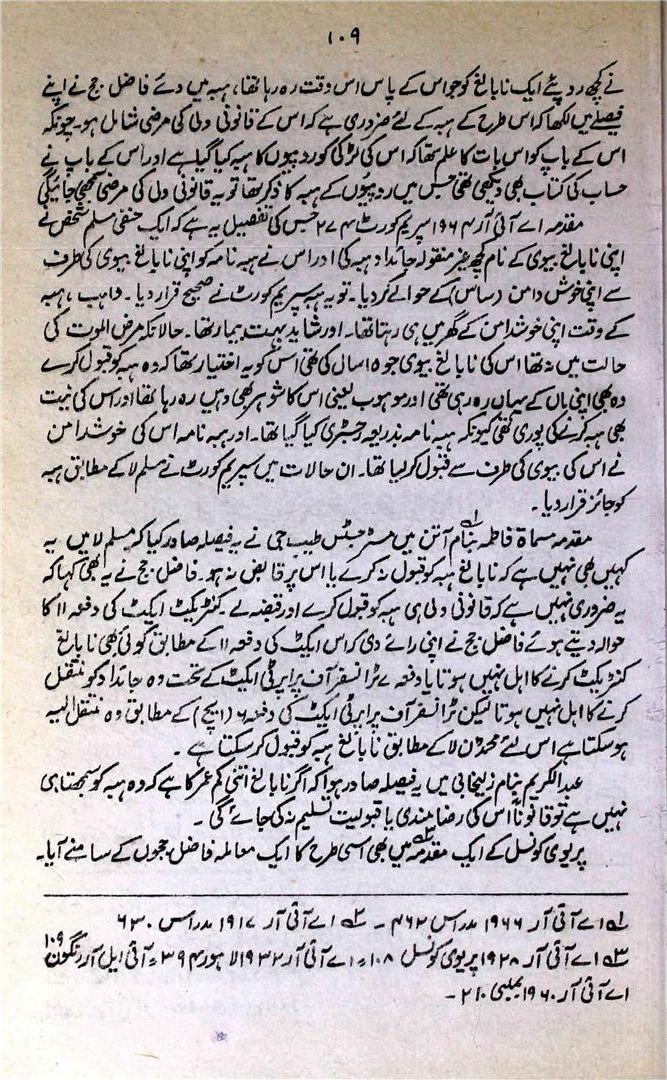 ۱۰۹
نے کچھ روپئے ایک نابالغ کو جو اس کے پاس اس وقت رہ رہا تھا، ہبہ میں دئے فاضل جج نے اپنے
فیصلے میں لکھا کہ اس طرح کے ہبہ کے لئے ضروری ہے کہ اس کے قانونی ولی کی مرضی شامل ہو۔ چونکہ
اس کے باپ کو اس بات کا علم تھا کہ اس کی لڑکی کو روپیوں کا ہبہ کیا گیا ہے اور اس کے باپ نے
حساب کی کتاب بھی دیکھی تھی جس میں روپئوں کے ہبہ کا ذکر تھا تو یہ قانونی ولی کی مرضی سمجھی جائیگی
مقدمہ اے آئی آر ۱۹۶۴ سپریم کورٹ ۲۷۴ جس کی تفصیل یہ ہے کہ ایک حنفی مسلم شخص نے
اپنی نابالغ بیوی کے نام کچھ غیر منقولہ جائداد ہبہ کی اور اس نے ہبہ نامہ کو اپنی نابالغ بیوی کی طرف
سے اپنی خوش دامن (ساس) کے حوالے کر دیا۔ تو یہ ہبہ سپریم کورٹ نے صحیح قرار دیا۔ واہب، ہبہ
کے وقت اپنی خوشدامن کے گھر میں ہی رہتا تھا۔ اور شاید بہت بیمار تھا۔ حالانکہ مرض الموت کی
حالت میں نہ تھا اس کی نابالغ بیوی جو ۱۵ سال کی تھی اس کو یہ اختیار تھا کہ وہ ہبہ کو قبول کرے
وہ بھی اپنی ماں کے یہاں رہ رہی تھی اور موہوب یعنی اس کا شوہر بھی وہیں رہ رہا تھا اور اس کی نیت
بھی ہبہ کرنے کی پوری تھی کیونکہ ہبہ نامہ بذریعہ رجسٹری کیا گیا تھا۔ اور ہبہ نامہ اس کی خوشدامن
نے اس کی بیوی کی طرف سے قبول کر لیا تھا۔ ان حالات میں سپریم کورٹ نے مسلم لا کے مطابق ہبہ
کو جائز قرار دیا۔
مقدمہ مسماۃ فاطمہ بنام آتن۱ میں مسٹر جسٹس طیب جی نے یہ فیصلہ صادر کیا کہ مسلم لا میں یہ
کہیں بھی نہیں ہے کہ نابالغ ہبہ کو قبول نہ کرے یا اس پر قابض نہ ہو۔ فاضل جج نے یہ بھی کہا کہ
یہ ضروری نہیں ہے کہ قانونی ولی ہی ہبہ کو قبول کرے اور قبضہ لے۔ کنٹریکٹ ایکٹ کی دفعہ ۱۱ کا
حوالہ دیتے ہوئے فاضل جج نے اپنی رائے دی کہ اس ایکٹ کی دفعہ ۱۱ کے مطابق کوئی بھی نابالغ
کنٹریکٹ کرنے کا اہل نہیں ہوتا یا دفعہ ۷ ٹرانسفر آف پراپرٹی ایکٹ کے تحت وہ جائداد کو منتقل
کرنے کا اہل نہیں ہوتا لیکن ٹرانسفر آف پراپرٹی ایکٹ کی دفعہ ۶ (ایچ) کے مطابق وہ منتقل الیہ
ہو سکتا ہے اس لئے محمڈن لا کے مطابق نابالغ ہبہ کو قبول کر سکتا ہے۔
عبدالکریم بنام زلیخا بی میں یہ فیصلہ صادر ہوا کہ اگر نابالغ اتنی کم عمر کا ہے کہ وہ ہبہ کو سمجھتا ہی
نہیں ہے تو قانوناً اس کی رضامندی یا قبولیت تسلیم نہ کی جائے گی۔
پریوی کونسل کے ایک مقدمہ میں بھی اسی طرح کا ایک معاملہ فاضل ججوں کے سامنے آیا۔
۱ اے آئی آر ۱۹۶۶ مدراس ۴۶۲۔ ۲ اے آئی آر ۱۹۱۷ مدراس ۶۳۰
۳ اے آئی آر ۱۹۲۸ پریوی کونسل ۱۰۸، اے آئی آر ۱۹۳۲ لاہور ۳۹۴، آئی ایل آر رنگون ۱۰۹
اے آئی آر ۱۹۶۰ بمبئی ۲۱۰۔